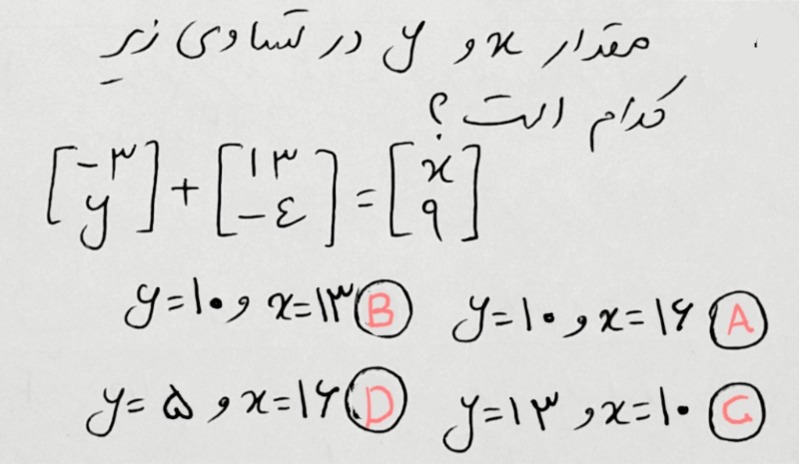 مقدار x و y در تساوی زیر
کدام است؟
[-۳ y] + [۱۳ -٤] = [x ۹]
A x=۱۶ و y=۱۰ B x=۱۳ و y=۱۰
C x=۱۰ و y=۱۳ D x=۱۶ و y=۵